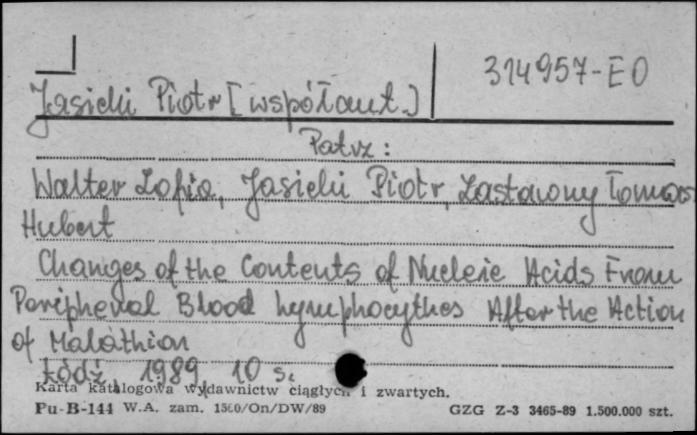 314957-EO
Jasicki Piotr [współaut.]
Patrz:
Walter Zofia, Jasicki Piotr, Zastawny Tomasz
Hubert
Changes of the Contents of Nucleic Acids From
Peripheral Blood Lymphocythes After the Action
of Malathion
Łódź 1989 10 s.
Karta katalogowa wydawnictw ciągłych i zwartych.
Pu-B-144 W.A. zam. 1560/On/DW/89 GZG Z-3 3465-89 1.500.000 szt.